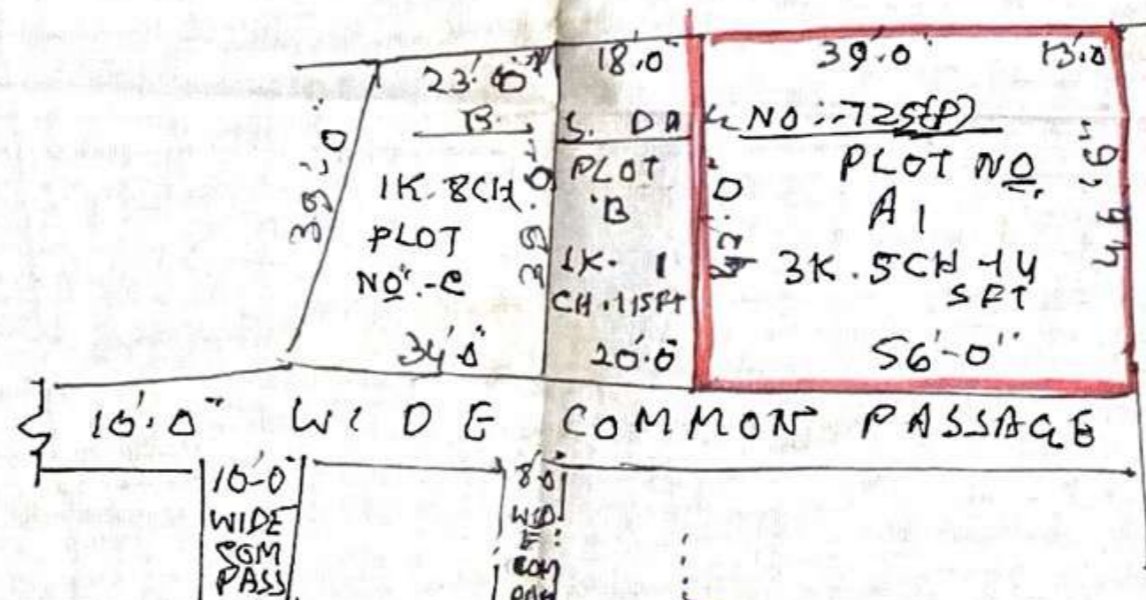 23'.0"
18'.0"
39'.0"
13'.0
B. S. DAG NO :- 725(P)
39'.0"
1K. 8CH
PLOT
NO.-C
34'.0"
39'.0
PLOT
'B
1K. 1
CH. 11SFT
20'.0"
42'.0"
PLOT NO.
A1
3K. 5CH 14
SFT
56'-0"
46'.6"
16'.0" WIDE COMMON PASSAGE
10'-0"
WIDE
COM
PASS
8'0
WID
E
COM